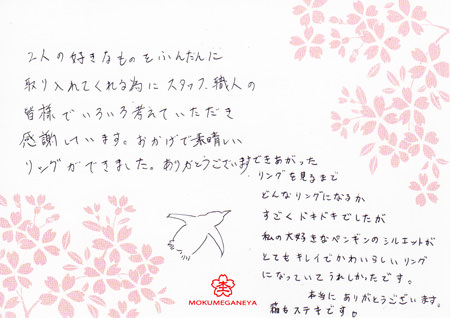 2人の好きなものをふんだんに
取り入れてくれる為にスタッフ、職人の
皆様でいろいろ考えていただき
感謝しています。おかげで素晴しい
リングができました。ありがとうございます
できあがった
リングを見るまで
どんなリングになるか
すごくドキドキでしたが
私の大好きなペンギンのシルエットが
とてもキレイでかわいらしいリング
になっていてうれしかったです。
本当にありがとうございます。
箱もステキです。
MOKUMEGANEYA